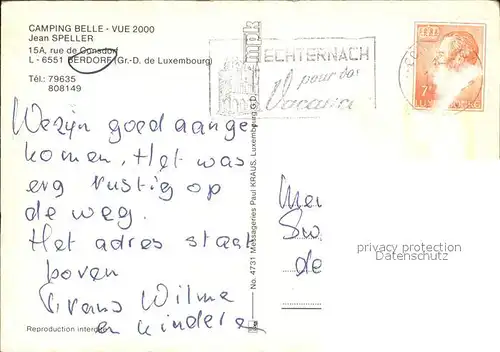 CAMPING BELLE - VUE 2000
Jean SPELLER
15A, rue de Consdorf
L - 6551 BERDORF (Gr.-D. de Luxembourg)
Tél.: 79635
808149
ECHTERNACH
pour vos
Vacances
Wezijn goed aange
komen. Het was
erg rustig op
de weg.
Het adres staat
boven
Wilma
en kinderen
Reproduction interdite
No. 4731 Messageries Paul KRAUS, Luxembourg G.D.
mpk
de
privacy protection
Datenschutz